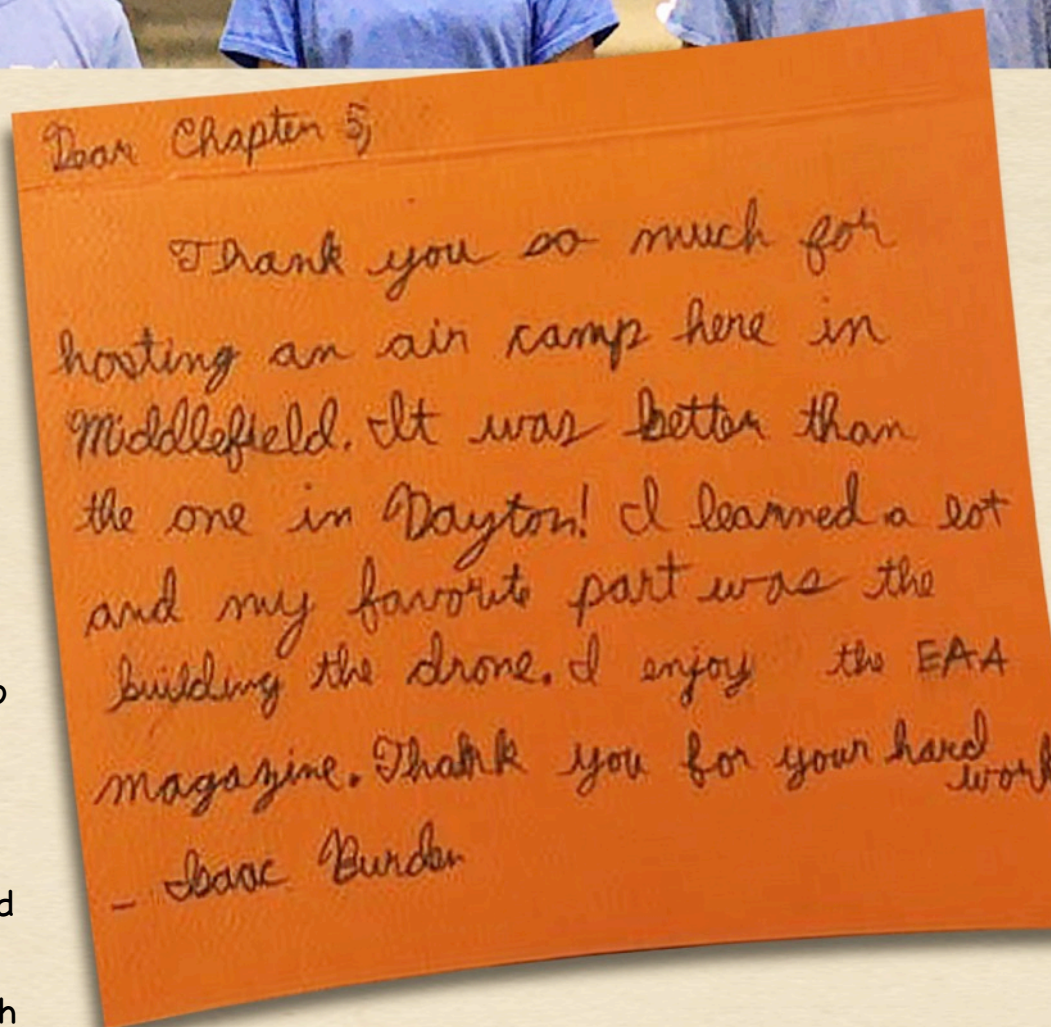 Dear Chapter 5,
Thank you so much for
hosting an air camp here in
Middlefield. It was better than
the one in Dayton! I learned a lot
and my favorite part was the
building the drone. I enjoy the EAA
magazine. Thank you for your hard
work
- Isaac Burden